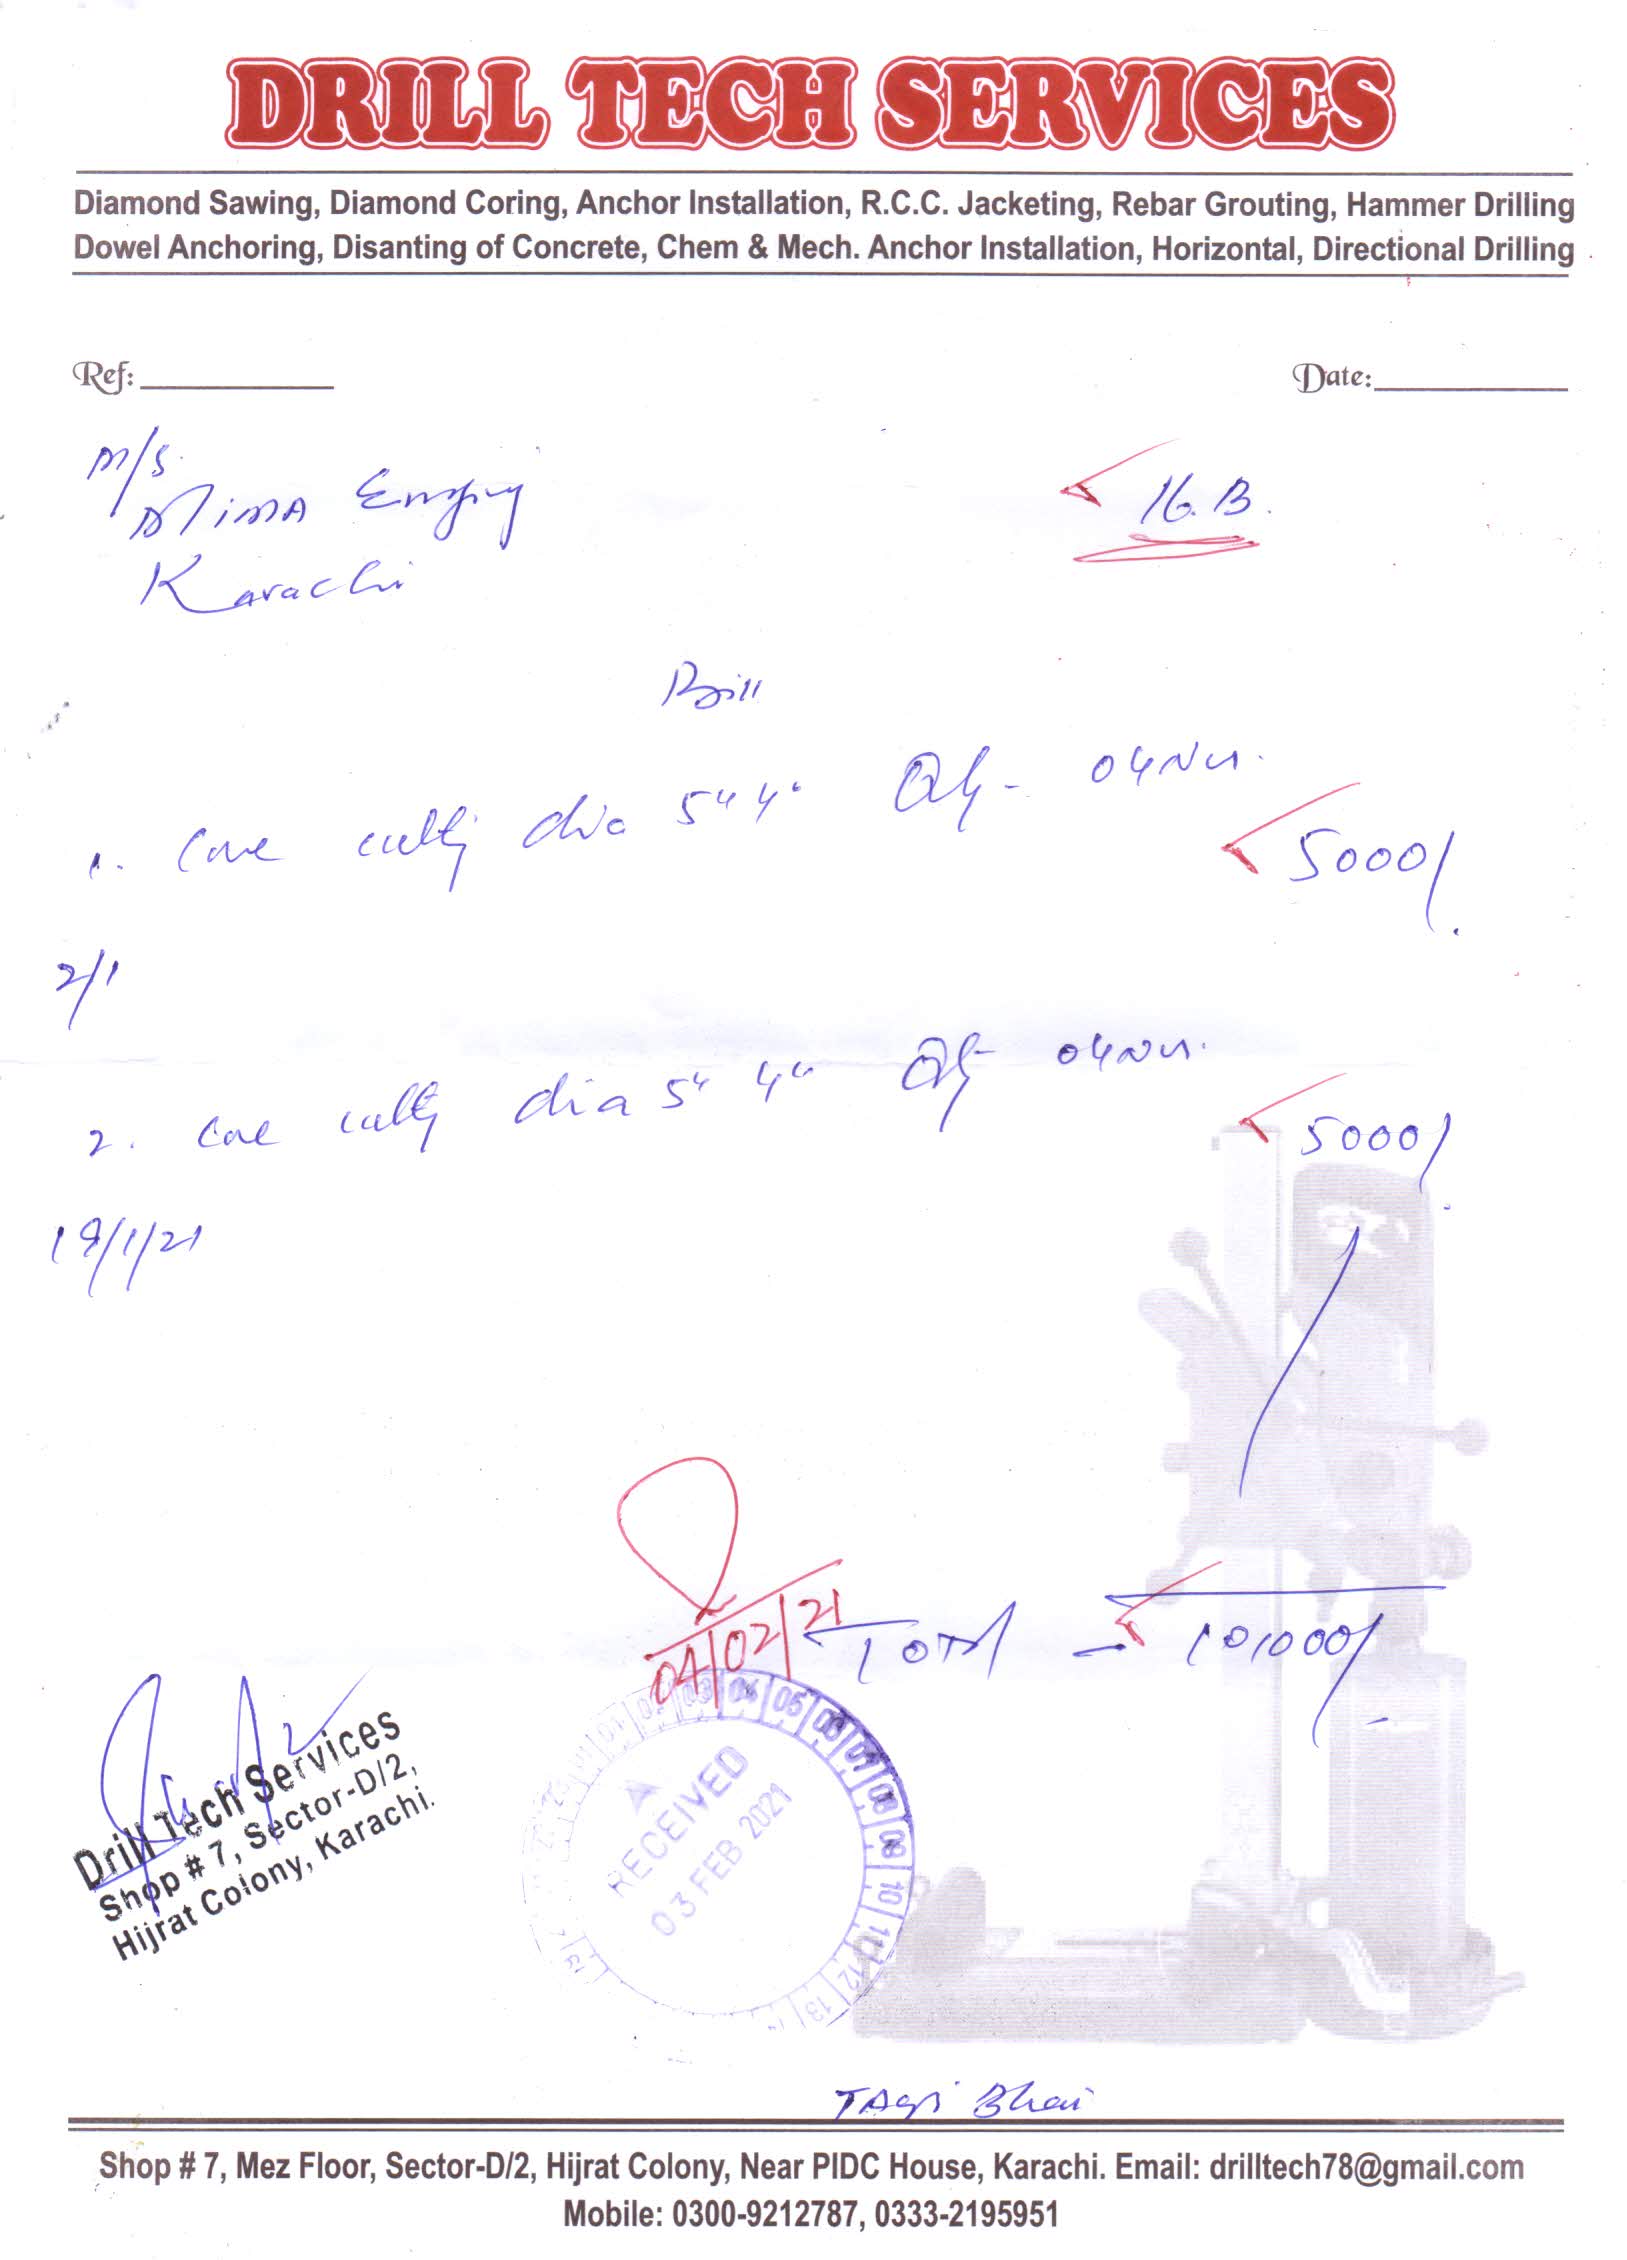 DRILL TECH SERVICES
Diamond Sawing, Diamond Coring, Anchor Installation, R.C.C. Jacketing, Rebar Grouting, Hammer Drilling
Dowel Anchoring, Disanting of Concrete, Chem & Mech. Anchor Installation, Horizontal, Directional Drilling
Ref: Date:
M/S.
MIMA
16.B.
Karachi
Bill
1. Core dia 5" 4" Qty - 04
5000/
2/1
2. Core dia 5" 4" Qty 04
5000/
19/1/21
04/02/21
TOTAL - 10,000/-
Drill Tech Services
Shop # 7, Sector-D/2,
Hijrat Colony, Karachi.
01 02 03 04 05 06 07 08 09 10 11 12 13
RECEIVED
03 FEB 2021
TAqi Bhai
Shop # 7, Mez Floor, Sector-D/2, Hijrat Colony, Near PIDC House, Karachi. Email: drilltech78@gmail.com
Mobile: 0300-9212787, 0333-2195951